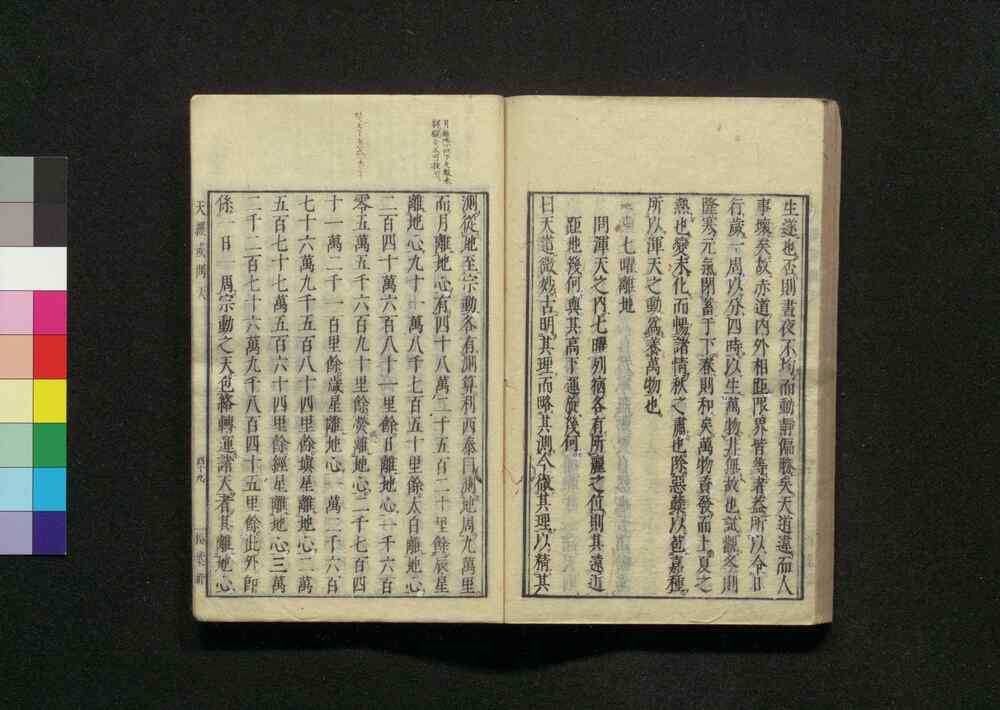 生遂也否則晝夜不均而動靜偏勝矣天道違而人
事壞矣故赤道内外相距限界皆等者益所以令日
行歲一周以分四時以生萬物非無故也試觀冬則
隆寒元氣閉蓄于下春則和矣萬物賁發而上夏之
熱也變末化而暢諸情秋之肅也除惡蘇以苞嘉種
所以渾天之動爲養萬物也
七曜離地
問渾天之内七曜列宿各有所麗之位則其遠近
距地幾何與其高下運廣幾何
曰天道微妙古明其理而略其測今微其理以精其
測從地至宗動各有測算利西泰曰測地周九萬里
而月離地心有四十八萬二千五百二十里餘辰星
離地心九十一萬八千七百五十里餘太白離地心
二百四十萬六百八十一里餘日離地心一千六百
零五萬五千六百九十里餘熒離地心二千七百四
十一萬二千一百里餘歲星離地心一萬二千六百
七十六萬九千五百八十四里餘塡星離地心二萬
五百七十七萬五百六十四里餘經星離地心三萬
二千二百七十六萬九千八百四十五里餘此外卽
係一日一周宗動之天包絡轉運諸天者其離地心
天經或問 天
四十九